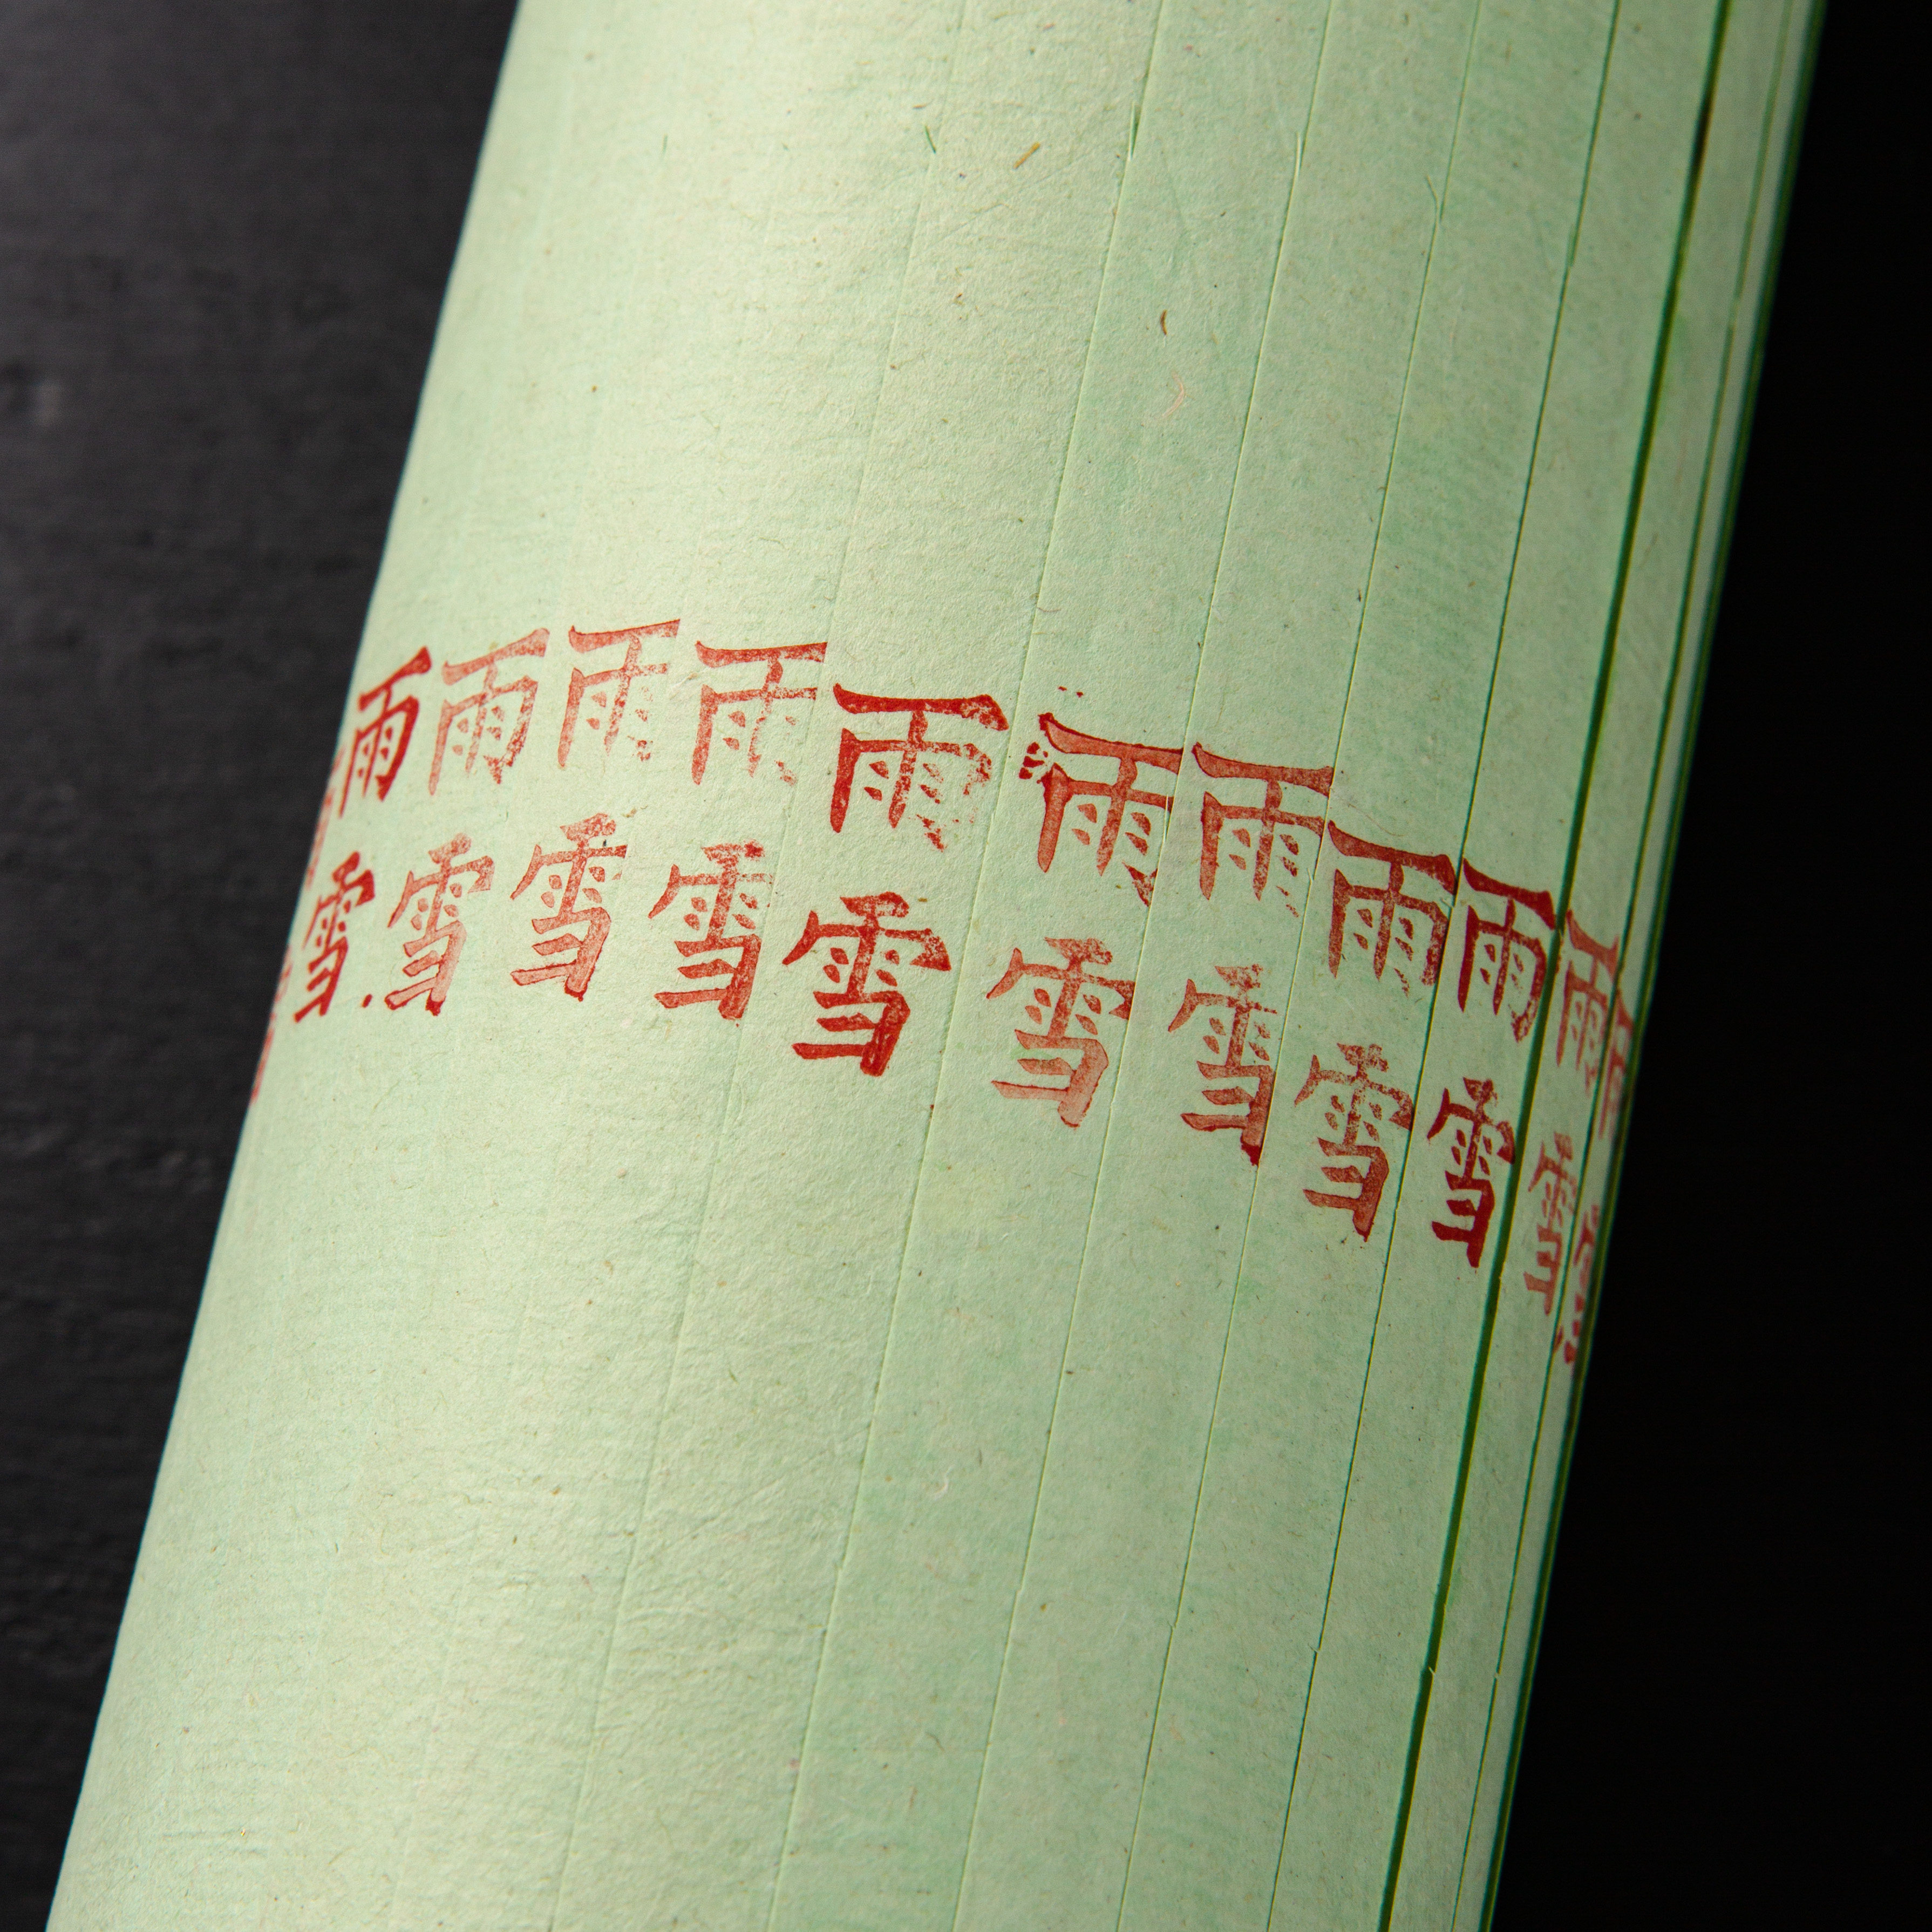 雨雪
雨雪
雨雪
雨雪
雨雪
雨雪
雨雪
雨雪
雨雪
雨雪